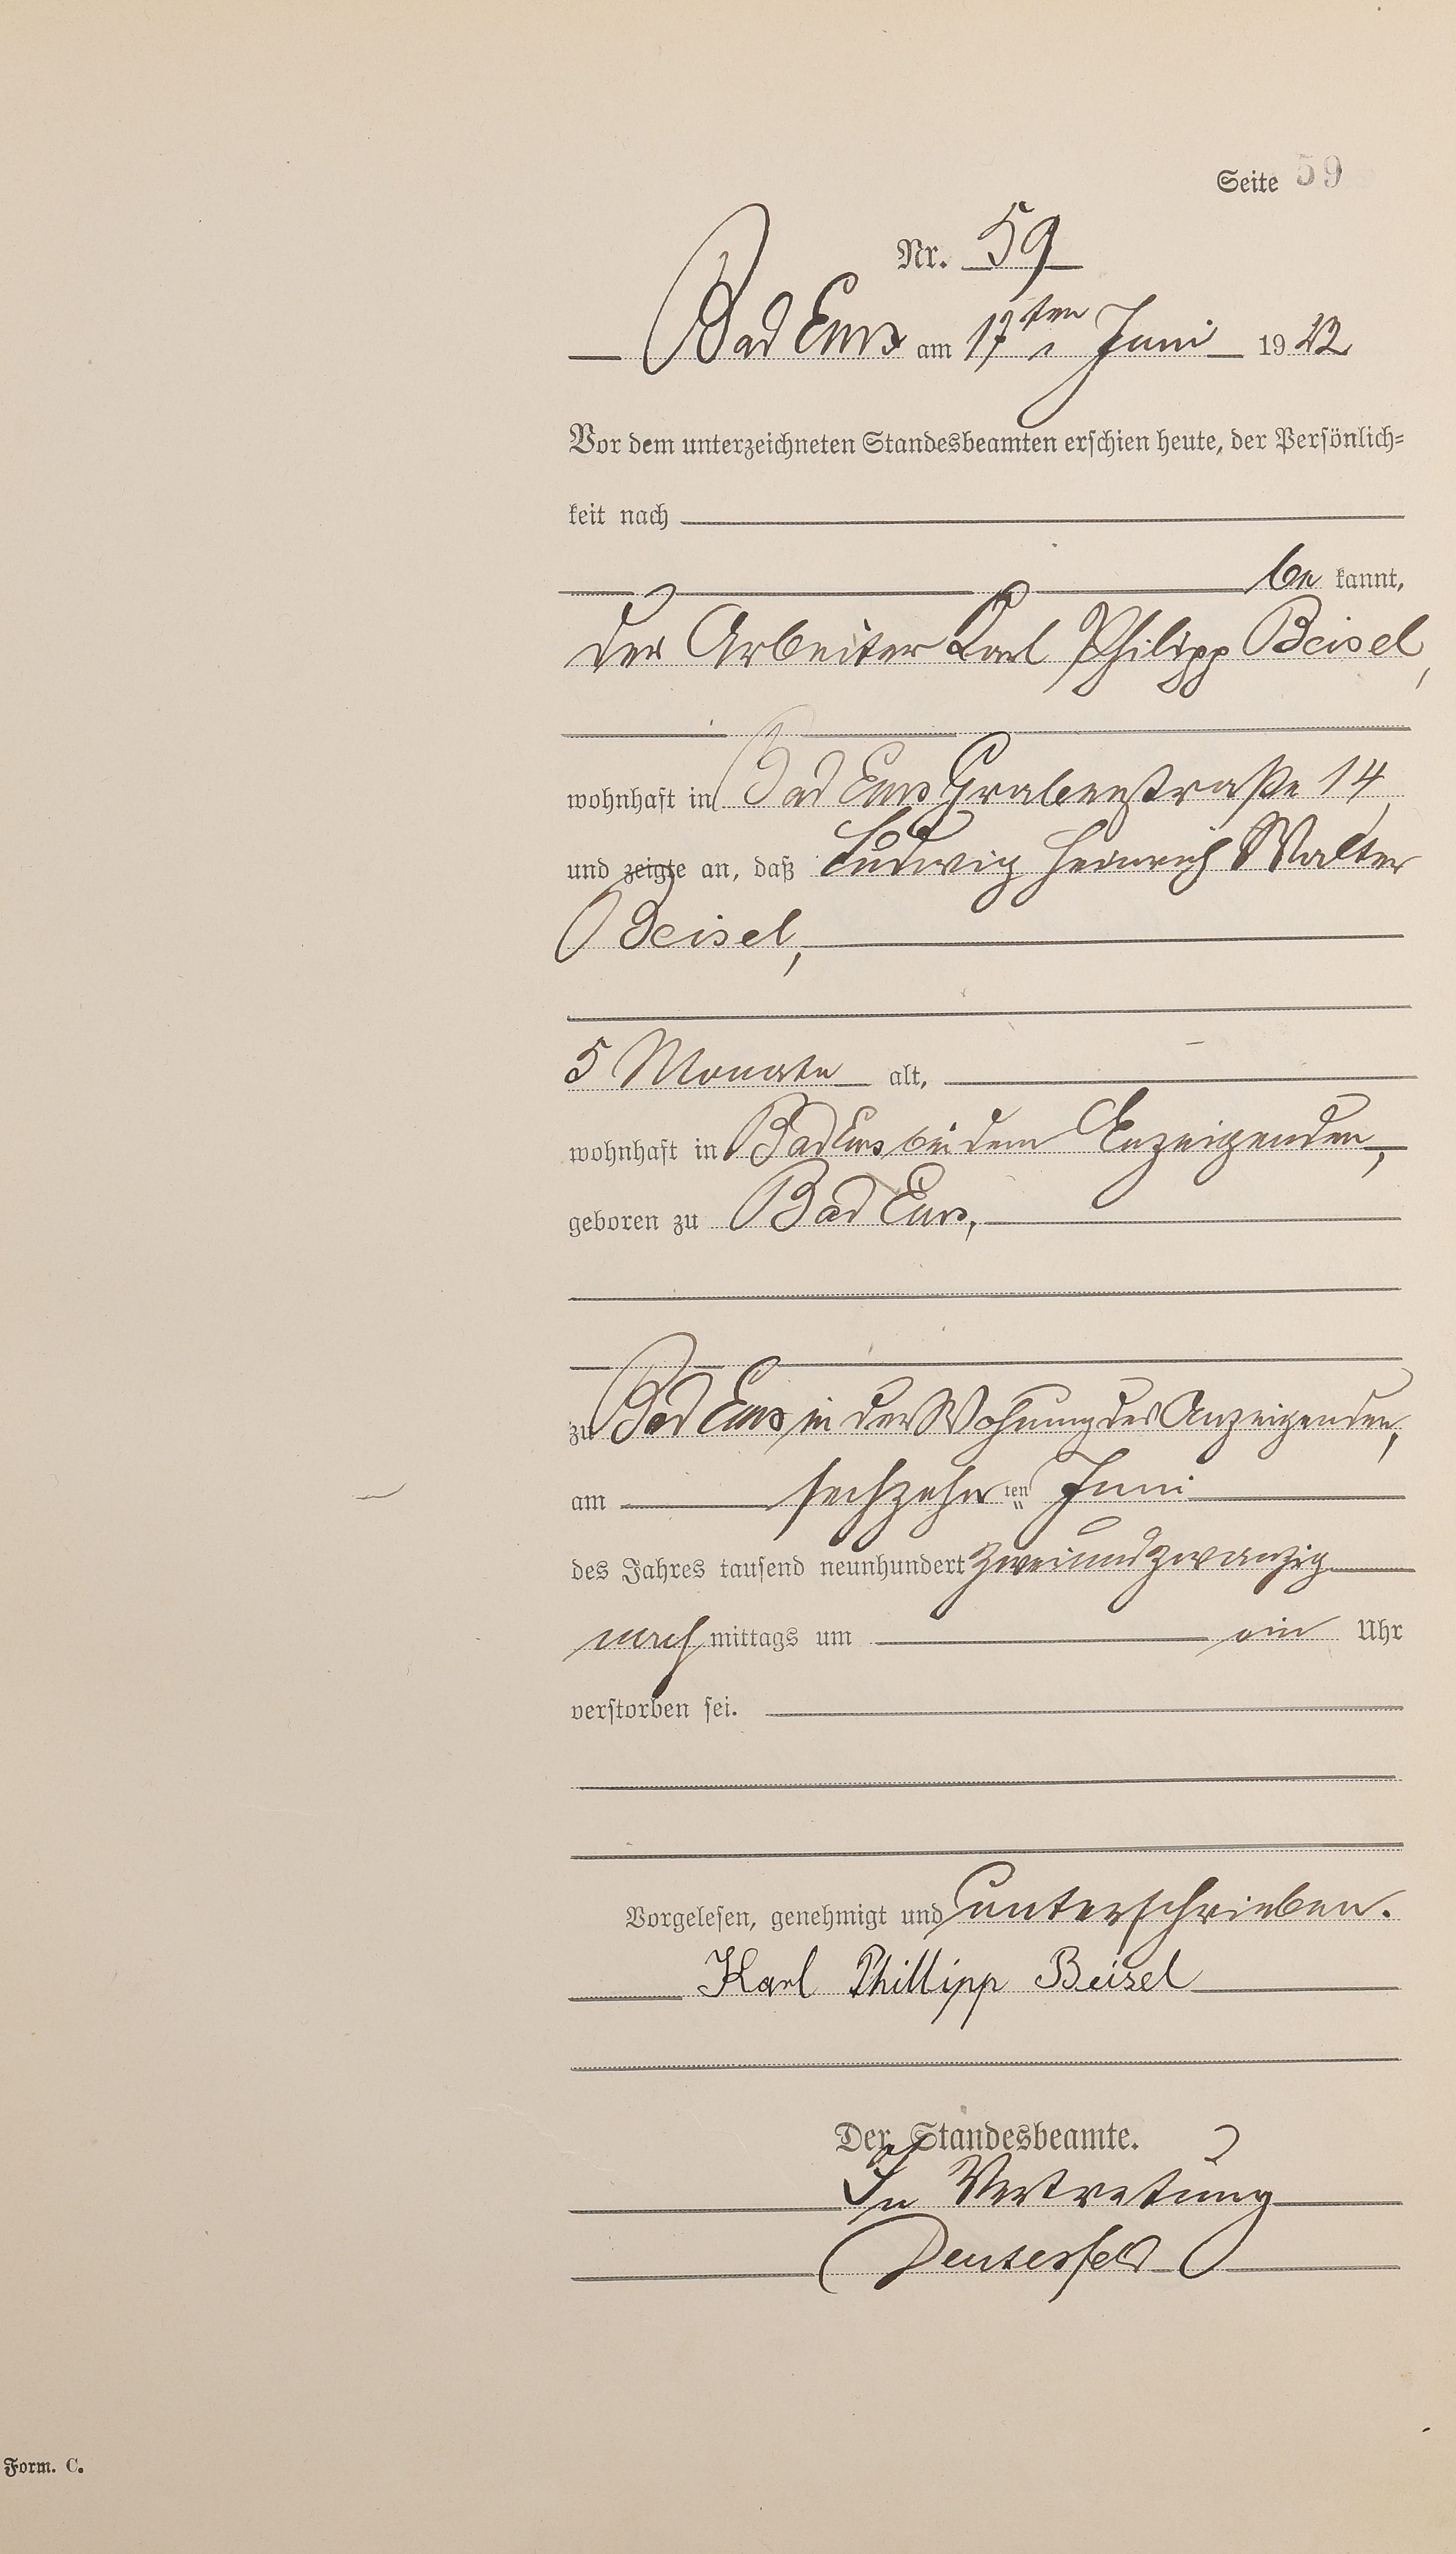 Seite 59
Nr. 59
Bad Ems am 17ten Juni 1922
Vor dem unterzeichneten Standesbeamten erschien heute, der Persönlich=
keit nach
be kannt,
der Arbeiter Karl Philipp Beisel,
wohnhaft in Bad Ems Grabenstraße 14,
und zeigte an, daß Ludwig Heinrich Walter
Beisel,
5 Monate alt,
wohnhaft in Bad Ems bei dem Anzeigenden,
geboren zu Bad Ems,
zu Bad Ems in der Wohnung des Anzeigenden,
am sechzehn ten Juni
des Jahres tausend neunhundert zweiundzwanzig
nach mittags um ein Uhr
verstorben sei.
Vorgelesen, genehmigt und unterschrieben.
Karl Phillipp Beisel
Der Standesbeamte.
In Vertretung
Form. C.